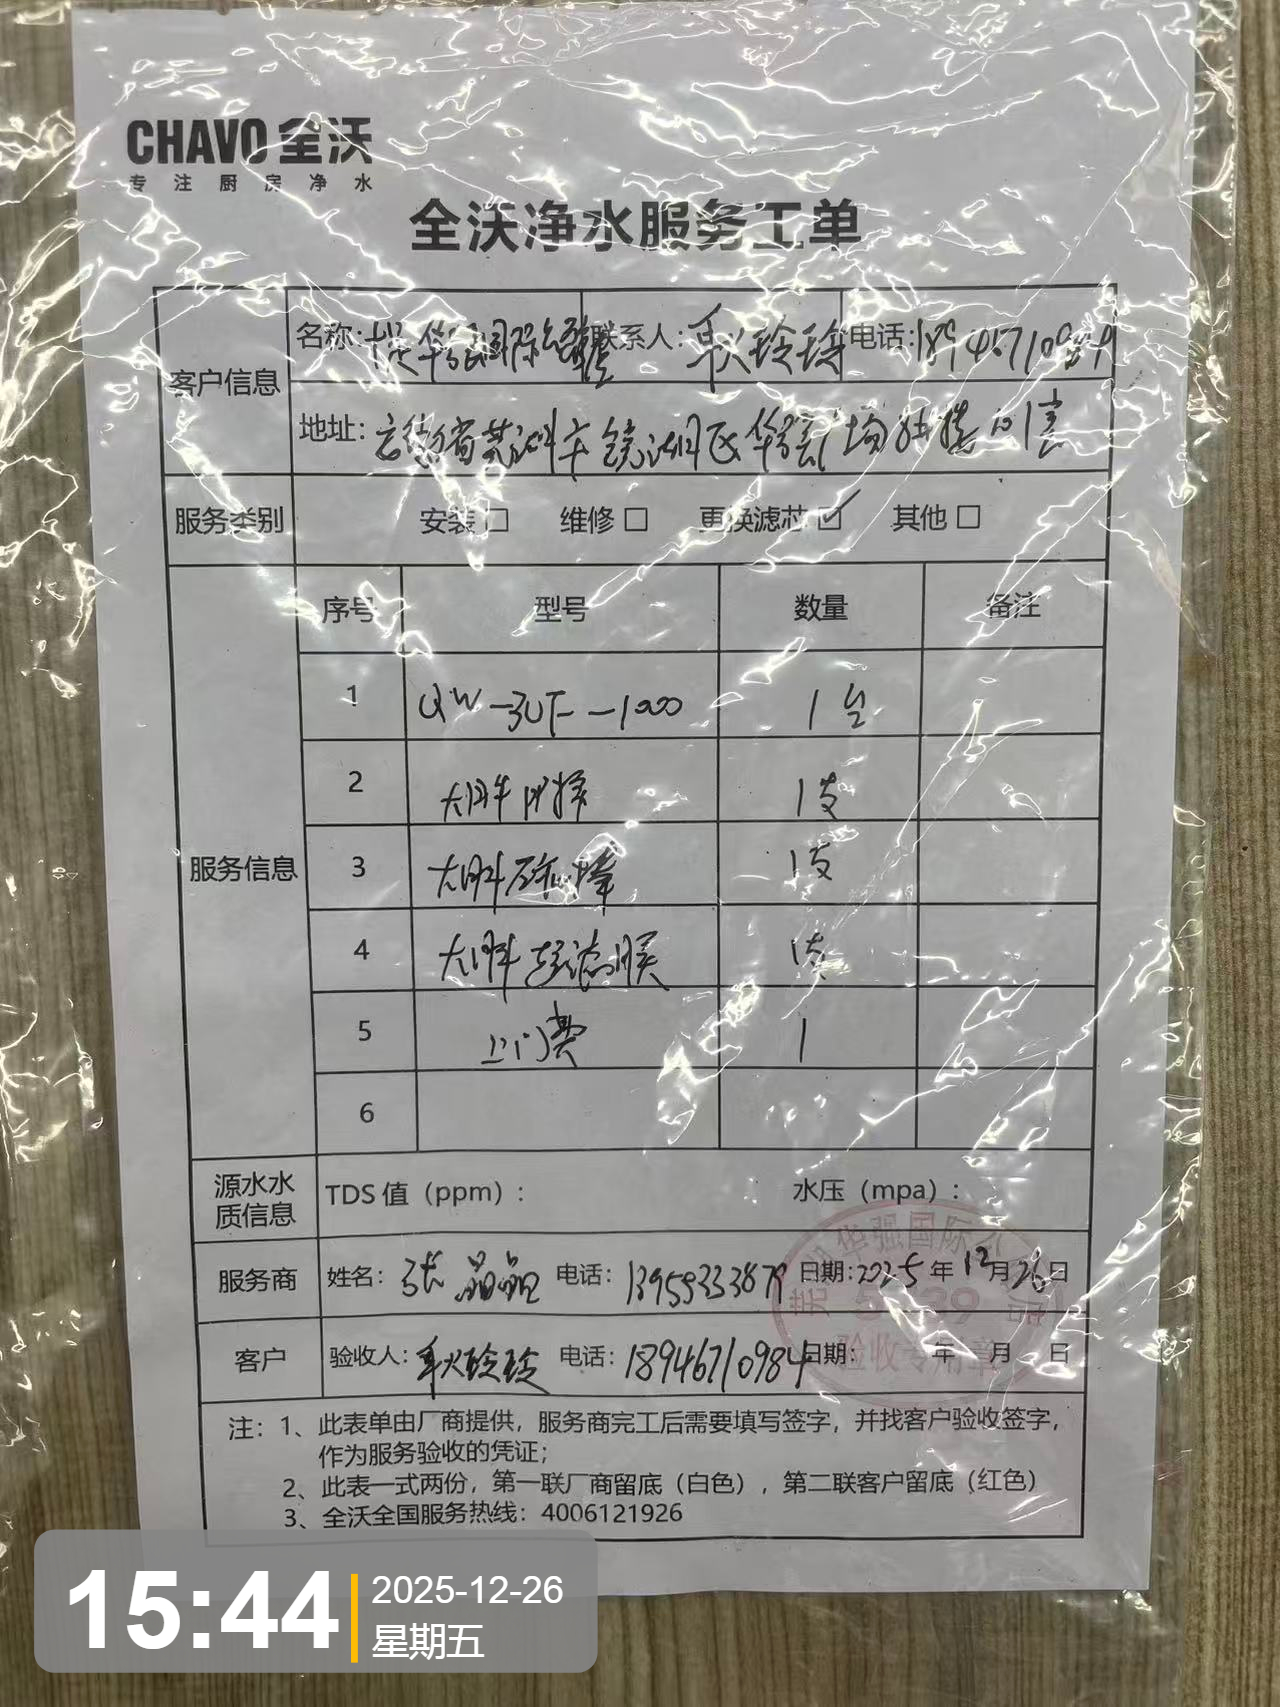 CHAVO 全沃
专注厨房净水
全沃净水服务工单
客户信息
名称: 华强国际 联系人: 耿玲玲 电话: 18946710984
地址: 安徽省芜湖市镜湖区华强广场
服务类别 安装□ 维修□ 更换滤芯☑ 其他□
服务信息
序号 型号 数量 备注
1 QW-3UF-1000 1台
2 大胖 1支
3 大胖 1支
4 大胖超滤膜 1支
5 上门费 1
6
源水水质信息 TDS 值（ppm）: 水压（mpa）:
服务商 姓名: 张晶晶 电话: 日期: 2025年12月26日
客户 验收人: 耿玲玲 电话: 18946710984 日期: 年 月 日
华强国际
验收专用章
注: 1、此表单由厂商提供，服务商完工后需要填写签字，并找客户验收签字，
作为服务验收的凭证；
2、此表一式两份，第一联厂商留底（白色），第二联客户留底（红色）
3、全沃全国服务热线: 4006121926
15:44
2025-12-26
星期五